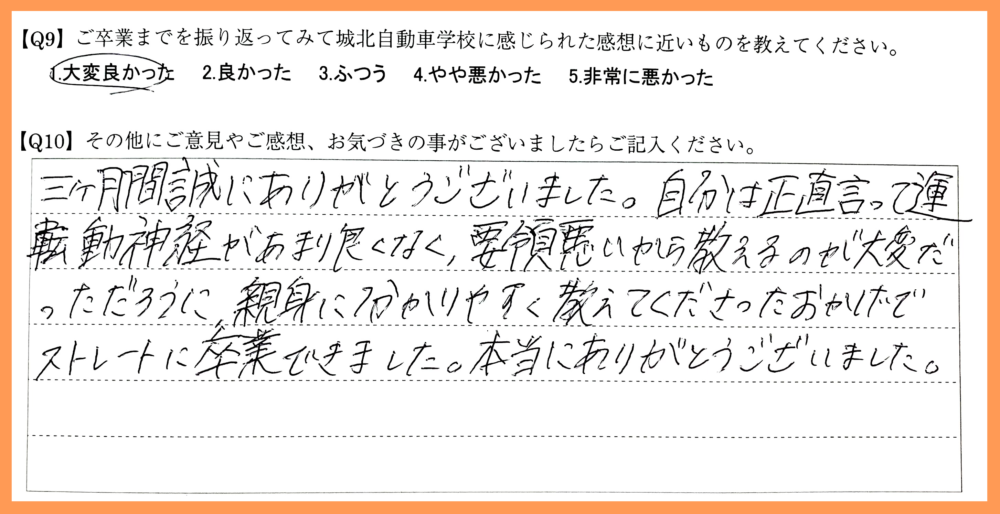 【Q9】ご卒業までを振り返ってみて城北自動車学校に感じられた感想に近いものを教えてください。
1.大変良かった 2.良かった 3.ふつう 4.やや悪かった 5.非常に悪かった
【Q10】その他にご意見やご感想、お気づきの事がございましたらご記入ください。
三ヶ月間誠にありがとうございました。自分は正直言って運
転動神経があまり良くなく,要領悪いから教えるのが大変だ
っただろうに,親身に分かりやすく教えてくださったおかげで
ストレートに卒業できました。本当にありがとうございました。